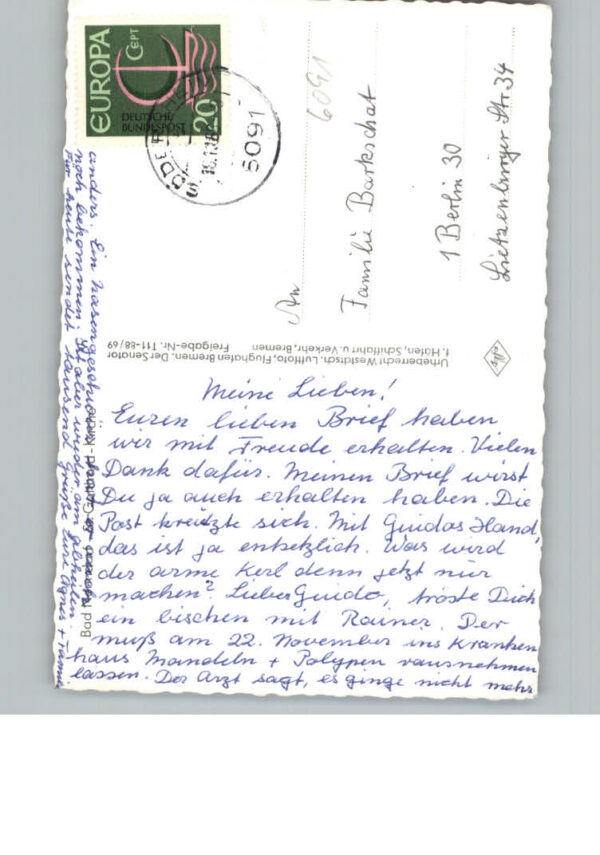 Meine Lieben!
Euren lieben Brief haben
wir mit Freude erhalten. Vielen
Dank dafür. Meinen Brief wirst
Du ja auch erhalten haben. Die
Post kreuzte sich. Mit Guidos Hand,
das ist ja entsetzlich. Was wird
der arme Kerl denn jetzt nur
machen? Lieber Guido, tröste Dich
ein bischen mit Rainer. Der
muß am 22. November ins Kranken
haus Mandeln + Polypen rausnehmen
lassen. Der Arzt sagt, es ginge nicht mehr
anders. Ein Nasengeschwür hat er
noch bekommen, ist aber wieder am abheilen.
Für heute sendet tausend Grüße Eure Agnes +
Bad
St. Gotthard - Kirche
Urheberrecht Westdtsch. Luftfoto, Flughafen Bremen. Der Senator
f. Häfen, Schiffahrt u. Verkehr, Bremen Freigabe-Nr. T11-88/69
An
Familie Barkschat
1 Berlin 30
Lietzenburger Str 34
6091
EUROPA
CEPT
DEUTSCHE
BUNDESPOST
20
5091